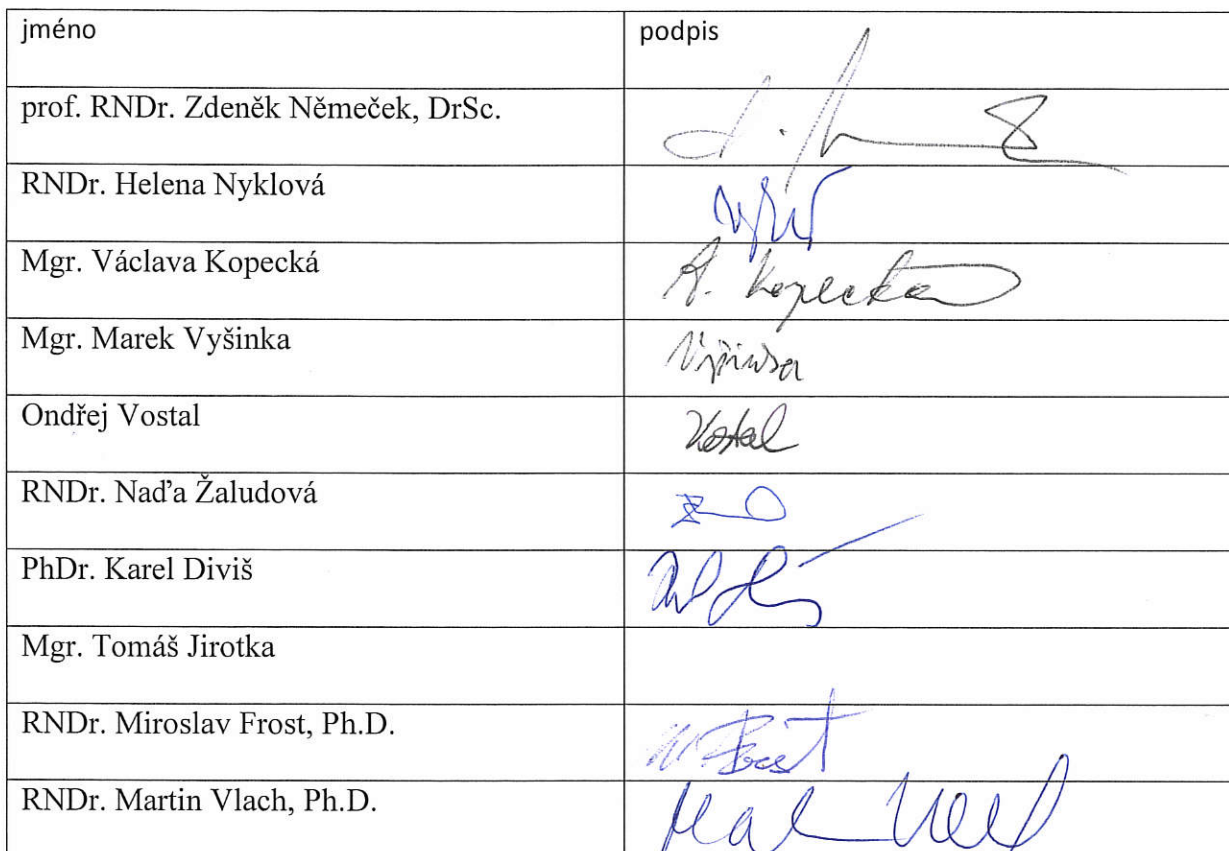 jméno podpis
prof. RNDr. Zdeněk Němeček, DrSc.
RNDr. Helena Nyklová
Mgr. Václava Kopecká Kopecká
Mgr. Marek Vyšinka
Ondřej Vostal Vostal
RNDr. Naďa Žaludová
PhDr. Karel Diviš
Mgr. Tomáš Jirotka
RNDr. Miroslav Frost, Ph.D.
RNDr. Martin Vlach, Ph.D.